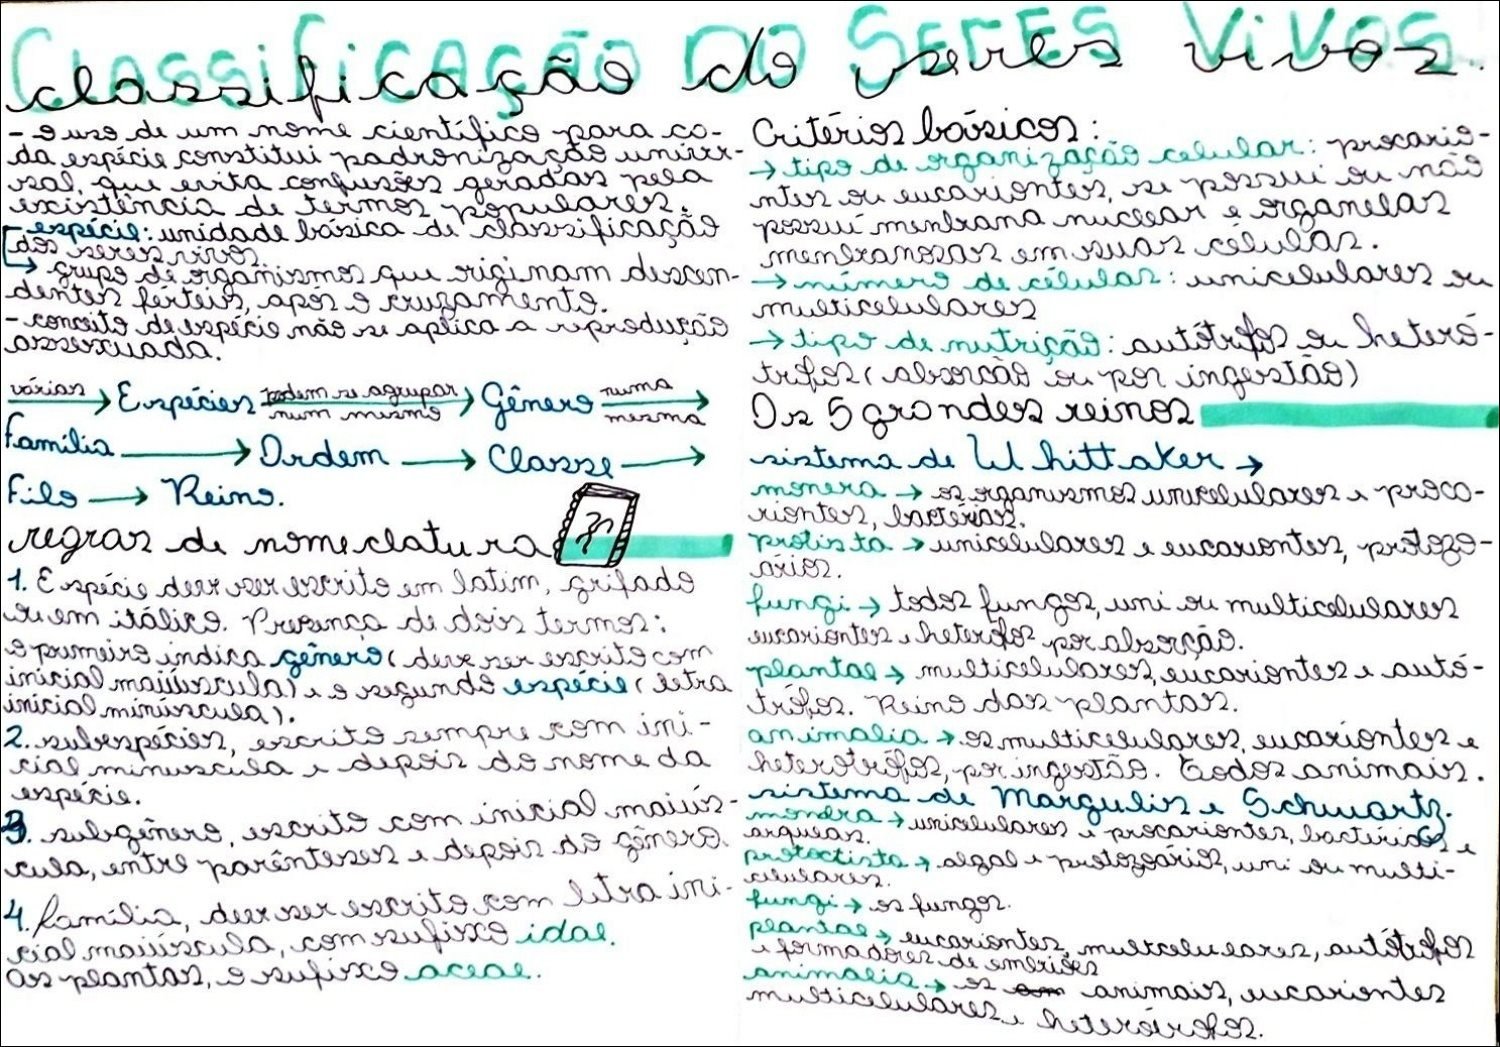 Classificação do Seres Vivos
classificação do seres vivos.
- o uso de um nome científico para ca-
da espécie constitui padronização univer-
sal, que evita confusões geradas pela
existência de termos populares.
- espécie: unidade básica de classificação
dos seres vivos.
→ grupo de organismos que originam descen-
dentes férteis, após o cruzamento.
- conceito de espécie não se aplica a reprodução
assexuada.
várias → Espécies podem se agrupar num mesmo → Gênero numa mesma →
família → Ordem → Classe →
filo → Reino.
regras de nomeclatura
1. Espécie deve ser escrito em latim, grifado
ou em itálico. Presença de dois termos:
o primeiro indica gênero (deve ser escrito com
inicial maiúscula) e o segundo espécie (letra
inicial minúscula).
2. subespécies, escrito sempre com ini-
cial minuscula e depois do nome da
espécie.
3. subgênero, escrito com inicial maiús-
cula, entre parênteses e depois do gênero.
4. família, deve ser escrito com letra ini-
cial maiúscula, com sufixo idae.
as plantas, o sufixo aceae.
Critérios básicos:
→ tipo de organização celular: procario-
ntes ou eucariontes, se possui ou não
possui membrana nuclear e organelas
membranosas em suas células.
→ número de células: unicelulares ou
multicelulares
→ tipo de nutrição: autótrofos ou heteró-
trofos (absorção ou por ingestão)
Os 5 grandes reinos
sistema de Whittaker →
monera → os organismos unicelulares e proca-
riontes, bactérias.
protista → unicelulares e eucariontes, protozo-
ários.
fungi → todos fungos, uni ou multicelulares
eucariontes e heterofos por absorção.
plantae → multicelulares, eucariontes e autó-
trófos. Reino das plantas.
animalia → os multicelulares, eucariontes e
heterotrófos, por ingestão. Todos animais.
sistema de Margulis e Schwartz.
monera → unicelulares e procariontes, bactérias e
arqueas.
protoctista → algal e protozoários, uni ou multi-
celulares.
fungi → os fungos.
plantae → eucariontes, multcelulares, autótrofos
e formadores de embriões
animalia → os animais, eucariontes
multicelulares e heterótrofos.